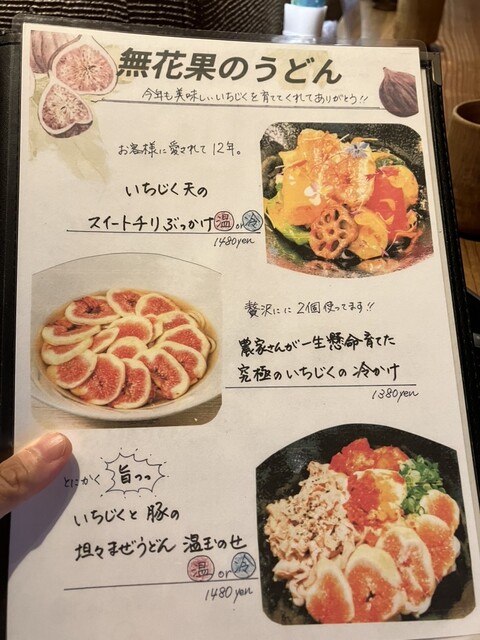 無花果のうどん
今年も美味しいいちじくを育ててくれてありがとう!!
お客様に愛されて12年。
いちじく天の
スイートチリぶっかけ温or冷
1480yen
贅沢にに2個使ってます!!
農家さんが一生懸命育てた
究極のいちじくの冷かけ
1380yen
とにかく旨っっ
いちじくと豚の
坦々まぜうどん 温玉のせ
温or冷
1480yen